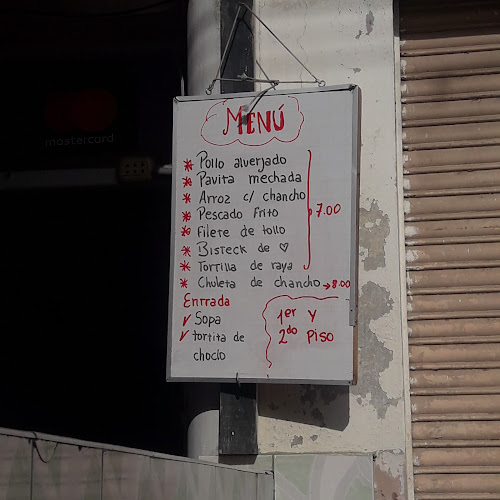 mastercard
MENÚ
* Pollo alverjado
* Pavita mechada
* Arroz c/ chancho
* Pescado frito
* Filete de tollo
* Bisteck de ♡
* Tortilla de raya
7.00
* Chuleta de chancho → 8.00
Entrada
✓ Sopa
✓ tortita de
choclo
1er y
2do Piso